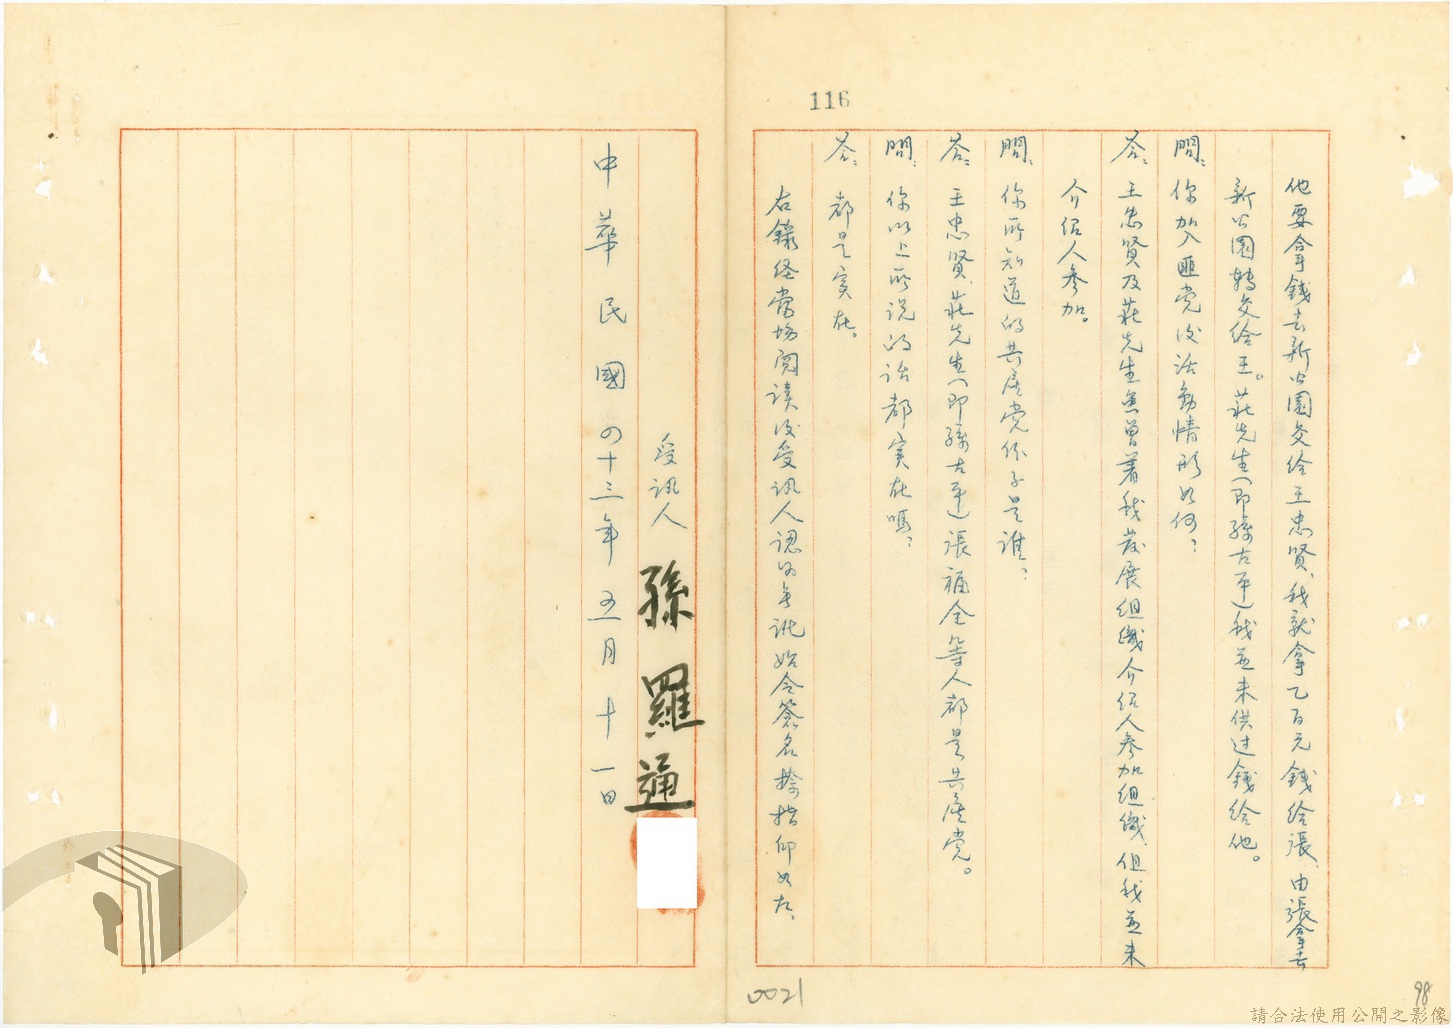 116
他要拿錢去新公園交给王忠賢、我就拿乙百元錢给張、由張拿去
新公園轉交给王。莊先生(即孫古平)我並未供过錢给他。
問：你加入匪党後活動情形如何？
答：王忠賢及莊先生曾着我发展组織介绍人参加组織、但我並未
介绍人参加。
問：你所知道的共產党份子是誰？
答：王忠賢、莊先生(即孫古平)張福全等人都是共產党。
問：你以上所说的话都实在嗎？
答：都是实在。
右錄经当场閱读後受讯人認为無訛始令簽名捺指印如左：
受讯人 孫羅通
中華民國四十三年五月十一日
0021
98
請合法使用公開之影像